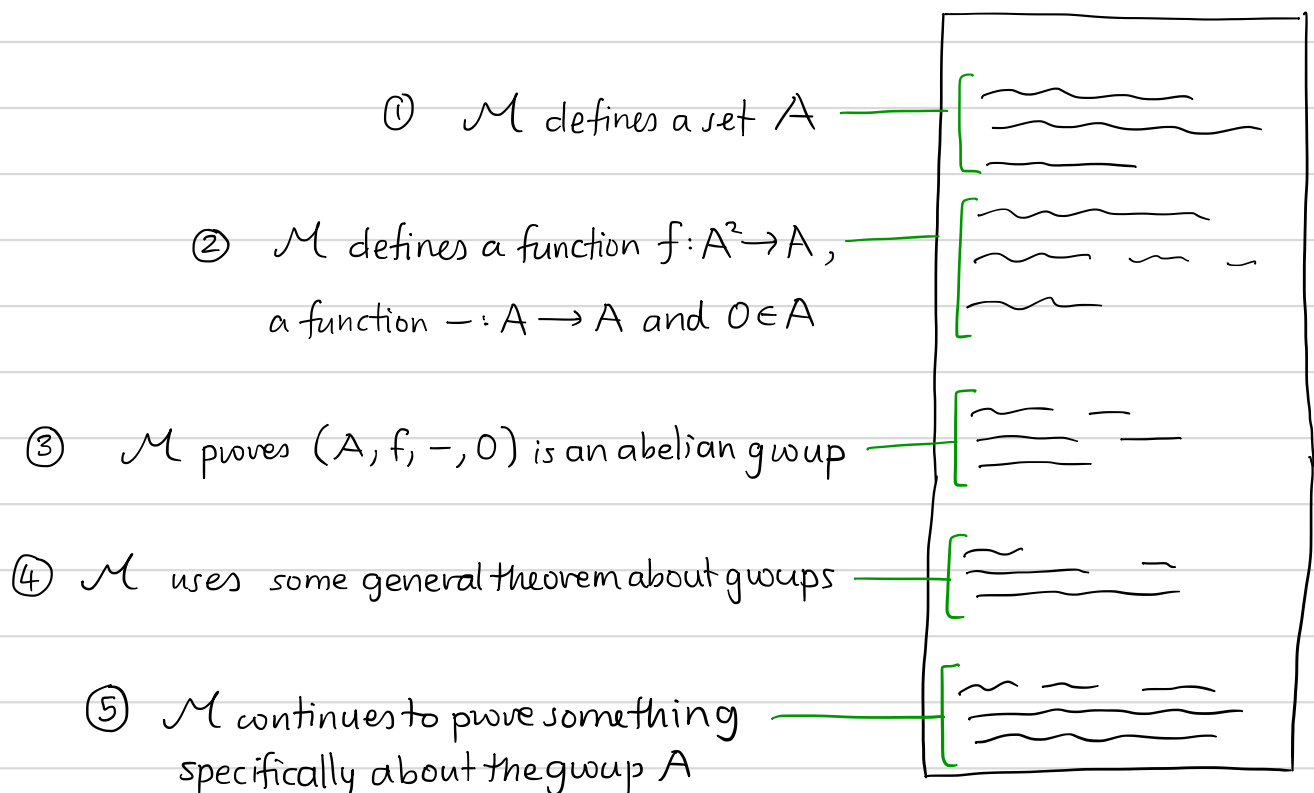 ① M defines a set A
② M defines a function f: A² → A,
a function −: A → A and 0 ∈ A
③ M proves (A, f, −, 0) is an abelian group
④ M uses some general theorem about groups
⑤ M continues to prove something
specifically about the group A